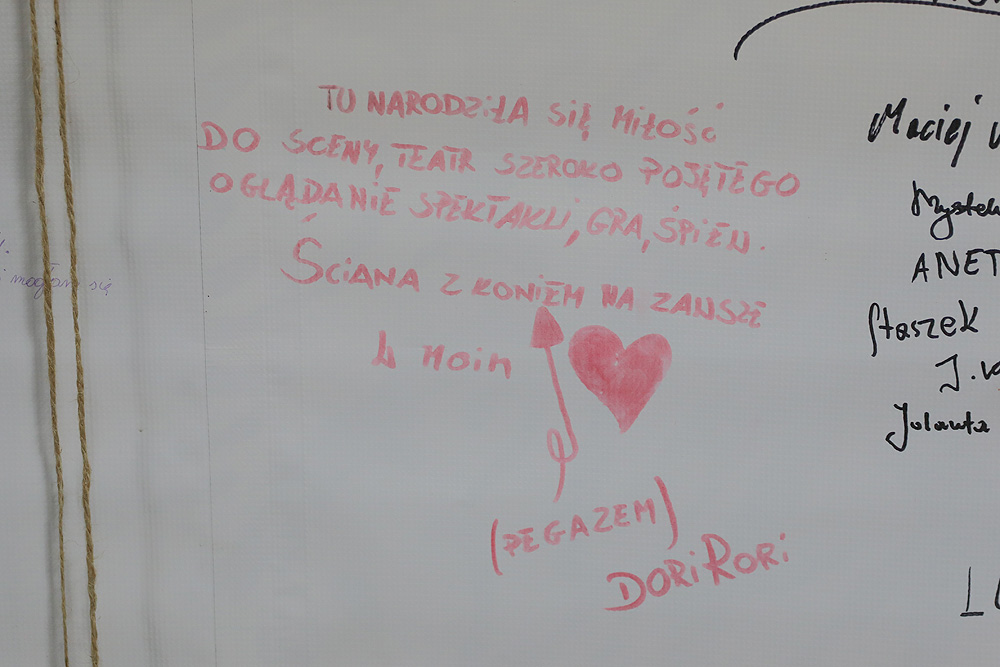 TU NARODZIŁA SIĘ MIŁOŚĆ
DO SCENY, TEATR SZEROKO POJĘTEGO
OGLĄDANIE SPEKTAKLI, GRA, ŚPIEW.
ŚCIANA Z KONIEM NA ZAWSZE
W MOIM
(PEGAZEM)
DORIRORI
mogłam się
Maciej
ANET
Staszek
J.
Jolanta